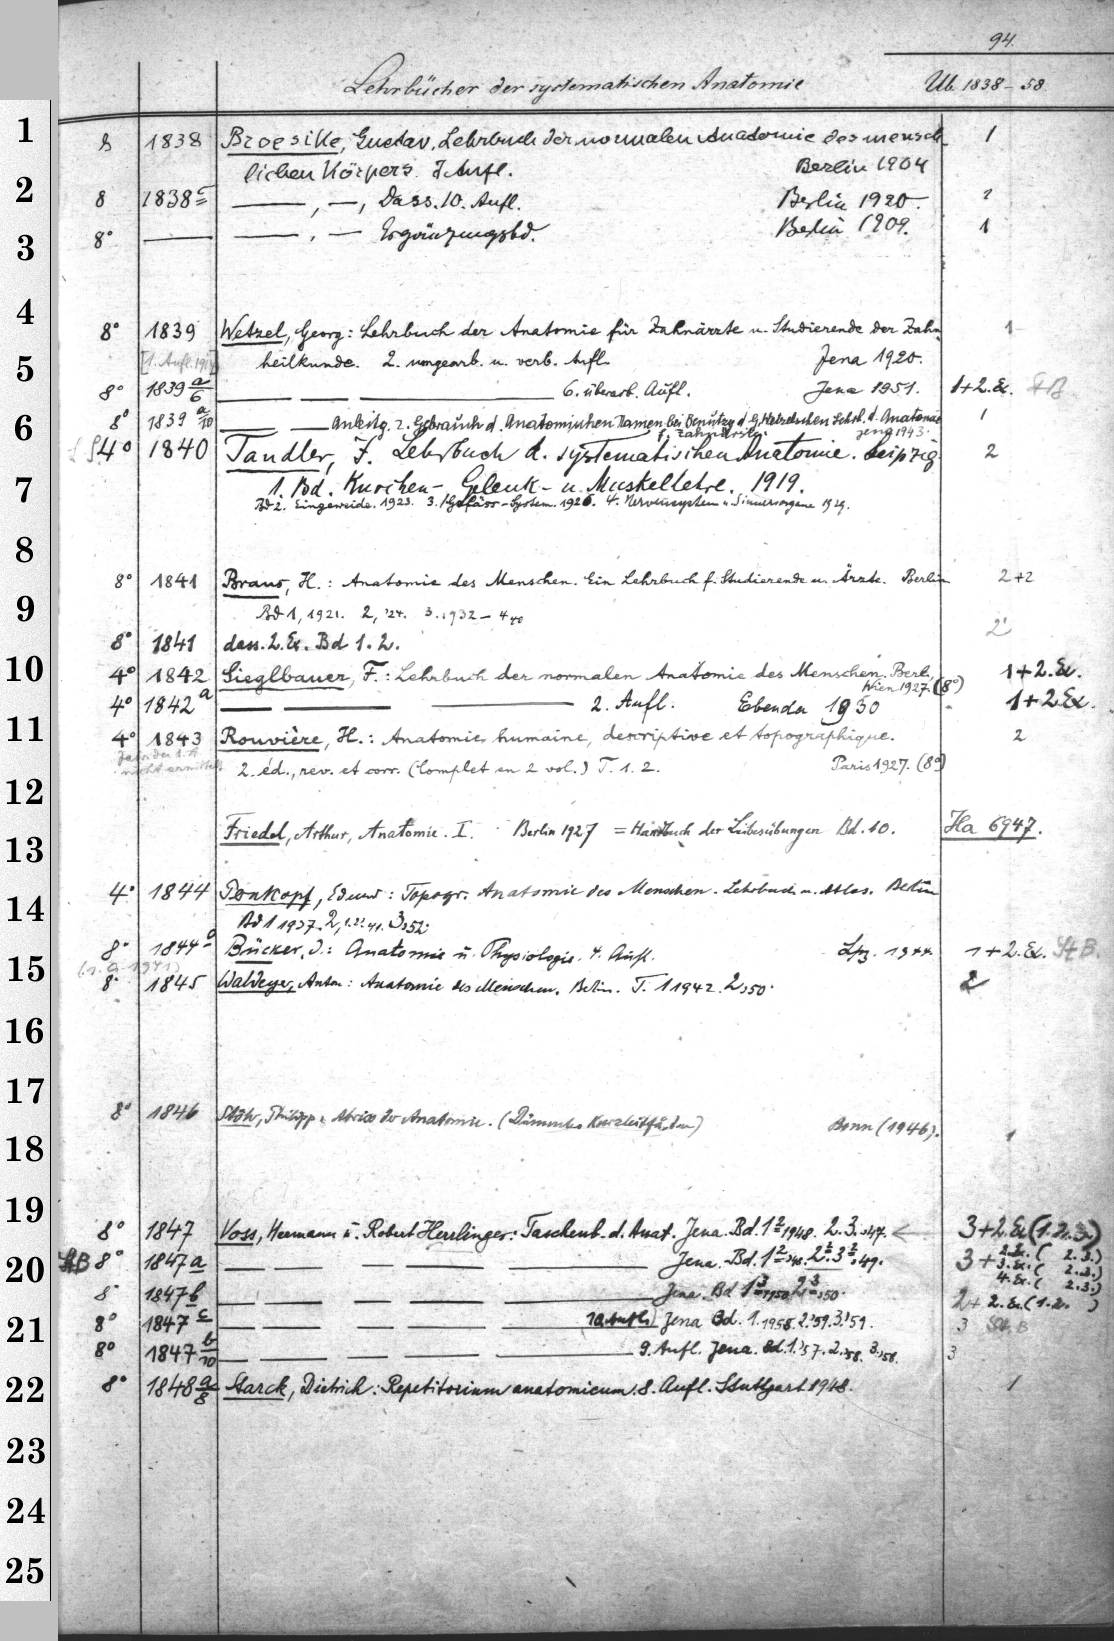 94.
Lehrbücher der systematischen Anatomie Ub 1838-58
1
8 1838 Broesike, Gustav, Lehrbuch der normalen Anatomie des mensch- 1
lichen Körpers. 7. Aufl. Berlin 1904
2
8 1838 c ———, —, Dass. 10. Aufl. Berlin 1920. 2
3
8° ——— ———, — Ergänzungsbd. Berlin 1909. 1
4
8° 1839 Wetzel, Georg: Lehrbuch der Anatomie für Zahnärzte u. Studierende der Zahn- 1
5
heilkunde. 2. umgearb. u. verb. Aufl. Jena 1920.
8° 1839 a/6 ——— ——— 6. überarb. Aufl. Jena 1951. 1+2.Ex.
6
8° 1839 a/10 ——— ——— Anleitg. z. Gebrauch d. Anatomischen Namen bei Benutzg d. G. Wetzelschen Lehrb. d. Anatomie 1
f. Zahnärzte. Jena 1943.
4° 1840 Tandler, J. Lehrbuch d. systematischen Anatomie. Leipzig 2
7
1. Bd. Knochen- Gelenk- u. Muskellehre. 1919.
Bd 2. Eingeweide. 1923. 3. Gefäss-System. 1926. 4. Nervensystem u. Sinnesorgane 1929.
8
8° 1841 Braus, H.: Anatomie des Menschen. Ein Lehrbuch f. Studierende u. Ärzte. Berlin 2+2
9
Bd 1, 1921. 2, '24. 3. 1932 – 4 40
8° 1841 dass. 2. Ex. Bd 1. 2. 2
10
4° 1842 Sieglbauer, F.: Lehrbuch der normalen Anatomie des Menschen. Berl., 1+2.Ex.
Wien 1927. (8°)
4° 1842 a ——— ——— 2. Aufl. Ebenda 1930 1+2Ex.
11
4° 1843 Rouvière, H.: Anatomie humaine, descriptive et topographique. 2
2. éd., rev. et corr. (Complet en 2 vol.) T. 1. 2. Paris 1927. (8°)
12
13
Friedel, Arthur, Anatomie. I. Berlin 1927 = Handbuch der Leibesübungen Bd. 10. Ha 6947.
14
4° 1844 Pernkopf, Eduard: Topogr. Anatomie des Menschen. Lehrbuch u. Atlas. Berlin
Bd 1 1937. 2, 41. 3, 52.
8° 1844 a Bücker, J.: Anatomie u. Physiologie. 4. Aufl. Lpz. 1944. 1+2.Ex. StB.
15
8° 1845 Waldeyer, Anton: Anatomie des Menschen. Berlin. T. 1 1942. 2, 50. 2
16
17
8° 1846 Stöhr, Philipp: Abriss der Anatomie. (Dümmlers Kurzleitfäden) Bonn (1946). 1
18
19
8° 1847 Voss, Hermann u. Robert Herrlinger: Taschenb. d. Anat. Jena. Bd. 1 2 1948. 2. 3. 47. 3+2.Ex(1.2.3.)
20
StB 8° 1847a ——— Jena. Bd. 1 2 48. 2 2. 3 2, 49. 3+ 2.Ex. ( 2.3.)
3.Ex. ( 2.3.)
4.Ex. ( 2.3.)
8° 1847b ——— Jena. Bd 1 3 1950 2 3, 50. 2+2.Ex.(1.2. )
21
8° 1847 c ——— (10. Aufl.) Jena Bd. 1. 1958. 2. '59. 3. '59. 3 StB
8° 1847 b/10 ——— 9. Aufl. Jena. Bd. 1. '57. 2. '58. 3. '58. 3
22
8° 1848 a/8 Starck, Dietrich: Repetitorium anatomicum. 8. Aufl. Stuttgart 1948. 1
23
24
25